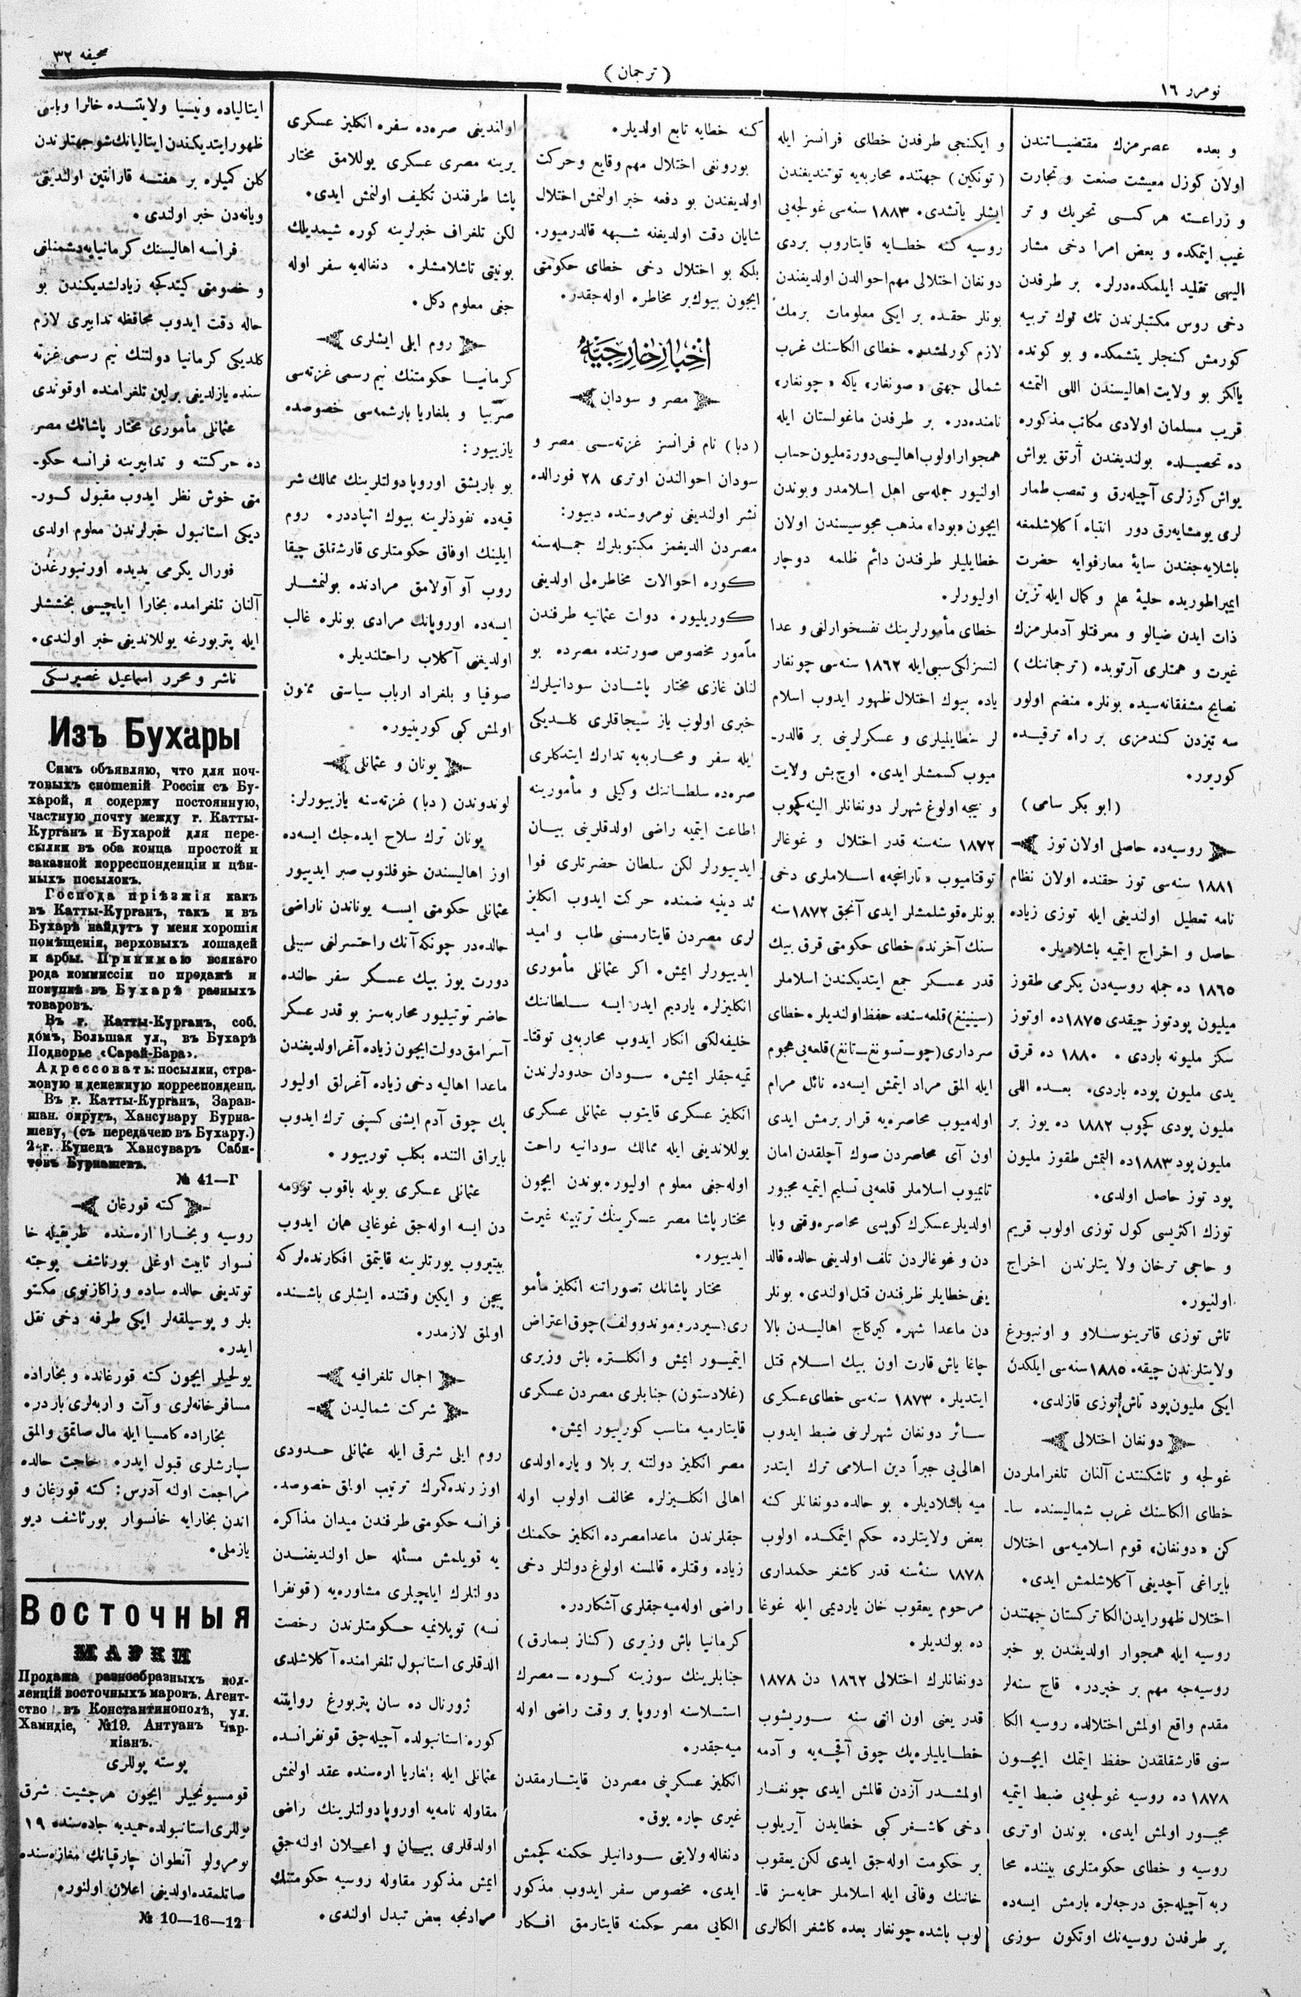 نومرو ١٦
( ترجمان )
صحیفه ٣٢
و بعده عصرمزك مقتضیاتندن
اولان كوزل معیشت صنعت و تجارت
و زراعته هركسی تحریك و تر
غیب ایتمكده و بعض امرا دخی مشار
الیهی تقلید ایلمكده‌درلر. بر طرفدن
دخی روس مكتبلرندن تك توك تربیه
كورمش كنجلر یتشمكده و بو كونده
یالكز بو ولایت اهالیسندن اللی التمشه
قریب مسلمان اولادی مكاتب مذكوره
ده تحصیلده بولندیغندن آرتق یواش
یواش كوزلری آچیله‌رق و تعصب طمار
لری یومشایه‌رق دور انتباه آكلاشلمغه
باشلایه‌جغندن سایهٔ معارفوایه حضرت
ایمپراطوریده حلیهٔ علم و كمال ایله تزین
ذات ایدن ضیالو و معرفتلو آدملرمزك
غیرت و همتلری آرتوبده (ترجمانك)
نصایح مشفقانه‌سیده بونلره منضم اولور
سه تیزدن كندمزی بر راه ترقیده
كوررز.
(ابو بكر سامی)
روسیه‌ده حاصلی اولان توز
١٨٨١ سنه‌سی توز حقنده اولان نظام
نامه تعطیل اولندیغی ایله توزی زیاده
حاصل و اخراج ایتمیه باشلادیلر.
١٨٦٥ ده جمله روسیه‌دن یكرمی طقوز
میلیون پودتوز چیقدی ١٨٧٥ده اوتوز
سكز ملیونه باردی. ١٨٨٠ ده قرق
یدی ملیون پوده باردی. بعده اللی
ملیون پودی كچوب ١٨٨٢ ده یوز بر
ملیون پود ١٨٨٣ده التمش طقوز ملیون
پود توز حاصل اولدی.
توزك اكثریسی كول توزی اولوب قریم
و حاجی ترخان ولایتلرندن اخراج
اولنیور.
تاش توزی قاترینوسلاو و اونبورغ
ولایتلرندن چیقه. ١٨٨٥ سنه‌سی ایلكدن
ایكی ملیون پود تاش توزی قازلدی.
دونغان اختلالی
غولجه و تاشكنتدن آلنان تلغراملردن
خطای الكاسنك غرب شمالیسنده سا-
كن «دونغان» قوم اسلامیه‌سی اختلال
بایراغی آچدیغی آكلاشلمش ایدی.
اختلال ظهور ایدن الكا تركستان جهتندن
روسیه ایله همجوار اولدیغندن بو خبر
روسیه‌جه مهم بر خبردر. قاچ سنه‌لر
مقدم واقع اولمش اختلالده روسیه الكا
سنی قارشقلقدن حفظ ایتمك ایچون
١٨٧٨ ده روسیه غولجه‌یی ضبط ایتمیه
مجبور اولمش ایدی. بوندن اوتری
روسیه و خطای حكومتلری بیننده محا
ربه آچیله‌جق درجه‌لره بارمش ایسه‌ده
بر طرفدن روسیه‌نك اوتكون سوزی
و ایكنجی طرفدن خطای فرانسز ایله
(تونكین) جهتنده محاربه‌یه توتندیغندن
ایشلر یاتشدی. ١٨٨٣ سنه‌سی غولجه‌یی
روسیه كنه خطایه قایتاروب بردی
دونغان اختلالی مهم احوالدن اولدیغندن
بونلر حقنده بر ایكی معلومات برمك
لازم كورلمشدر. خطای الكاسنك غرب
شمالی جهتی «صونغار» یاكه «چونغار»
نامنده‌در. بر طرفدن ماغولستان ایله
همجوار اولوب اهالیسی دورة ملیون حساب
اولنیور جمله‌سی اهل اسلامدر و بوندن
ایچون «بودا» مذهب مجوسیسندن اولان
خطایلیلر طرفندن دائم ظلمه دوچار
اولیورلر.
خطای مأمورلرینك نفسخوارلغی و عدا
لتسزلكی سببی ایله ١٨٦٢ سنه‌سی چونغار
یاده بیوك اختلال ظهور ایدوب اسلام
لر خطایلیلری و عسكرلرینی بر قالدر-
میوب كسمشلر ایدی. اوچ بش ولایت
و نیجه اولوغ شهرلر دونغانلر الینه كچوب
١٨٧٢ سنه‌سنه قدر اختلال و غوغالر
توقتامیوب «تارانچه» اسلاملری دخی
بونلره قوشلمشلر ایدی آنجق ١٨٧٢ سنه
سنك آخرنده خطای حكومتی قرق بیك
قدر عسكر جمع ایتدیكندن اسلاملر
(سینینغ) قلعه‌سنده حفظ اولندیلر. خطای
سرداری (چو-تسونغ-تانغ) قلعه‌یی هجوم
ایله المق مراد ایتمش ایسه‌ده نائل مرام
اوله‌میوب محاصره‌یه قرار برمش ایدی
اون آی محاصردن صوك آچلقدن امان
تاپمیوب اسلاملر قلعه‌یی تسلیم ایتمیه مجبور
اولدیلر عسكرك كوپسی محاصره وقتی وبا
دن و غوغالردن تلف اولدیغی حالده قالد
یغی خطایلر طرفندن قتل اولندی. بونلر
دن ماعدا شهره كیركاچ اهالیدن بالا
چاغا یاش قارت اون بیك اسلام قتل
ایتدیلر. ١٨٧٣ سنه‌سی خطای عسكری
سائر دونغان شهرلرنی ضبط ایدوب
اهالی‌یی جبراً دین اسلامی ترك ایتدر
میه باشلادیلر. بو حالده دونغانلر كنه
بعض ولایتلرده حكم ایتمكده اولوب
١٨٧٨ سنه‌سنه قدر كاشغر حكمداری
مرحوم یعقوب خان یاردیمی ایله غوغا
ده بولندیلر.
دونغانلرك اختلالی ١٨٦٢ دن ١٨٧٨
قدر یعنی اون التی سنه سوریشوب
خطایلیلره پك چوق آقچه‌یه و آدمه
اولمشدر آزدن قالمش ایدی چونغار
دخی كاشغر كبی خطایدن آیریلوب
بر حكومت اوله‌جق ایدی لكن یعقوب
خانك وفاتی ایله اسلاملر حمایه‌سز قا-
لوب باشده چونغار بعده كاشغر الكالری
كنه خطایه تابع اولدیلر.
بورونغی اختلال مهم وقایع و حركت
اولدیغندن بو دفعه خبر اولنمش اختلال
شایان دقت اولدیغنه شبهه قالدرمیور.
بلكه بو اختلال دخی خطای حكومتی
ایچون بیوك بر مخاطره اوله‌جقدر.
اخبار خارجیه
مصر و سودان
(دبا) نام فرانسز غزته‌سی مصر و
سودان احوالندن اوتری ٢٨ فورالده
نشر اولندیغی نومروسنده دییور:
مصردن الدیغمز مكتوبلرك جمله‌سنه
كوره احوالات مخاطره‌لی اولدیغی
كوریلیور. دولت عثمانیه طرفندن
مأمور مخصوص صورتنده مصرده بو
لنان غازی مختار پاشادن سودانیلرك
خبری اولوب یاز سیجاقلری كلدیكی
ایله سفر و محاربه‌یه تدارك ایتدكلری
صره‌ده سلطاننك وكیلی و مأمورینه
اطاعت ایتمیه راضی اولدقلرینی بیان
ایدییورلر لكن سلطان حضرتلری فوا
ئد دینیه ضمنده حركت ایدوب انكلیز
لری مصردن قایتارمسنی طلب و امید
ایدییورلر ایمش. اكر عثمانلی مأموری
انكلیزلره یاردیم ایدر ایسه سلطاننك
خلیفه‌لكنی انكار ایدوب محاربه‌یی توقتا-
تمیه‌جقلر ایمش. سودان حدودلرندن
انكلیز عسكری قایتوب عثمانلی عسكری
یوللاندیغی ایله ممالك سودانیه راحت
اوله‌جغی معلوم اولیور. بوندن ایچون
مختار پاشا مصر عسكرینك ترتیبنه غیرت
ایدییور.
مختار پاشانك تصوراتنه انكلیز مأمو
ری (سیر دروموندوولف) چوق اعتراض
ایتمیور ایمش و انكلتره باش وزیری
(غلادستون) جنابلری مصردن عسكری
قایتارمیه مناسب كورییور ایمش.
مصر انكلیز دولتنه بر بلا و یاره اولدی
اهالی انكلیزلره مخالف اولوب اوله
جقلرندن ماعدا مصرده انكلیز حكمنك
زیاده وقتلره قالمسنه اولوغ دولتلر دخی
راضی اولمیه‌جقلری آشكاردر.
كرمانیا باش وزیری (كناز بسمارق)
جنابلرینك سوزینه كوره – مصرك
استلاسنه اوروپا بر وقت راضی اوله
میه‌جقدر.
انكلیز عسكرینی مصردن قایتارمقدن
غیری چاره یوق.
دنغاله ولایتی سودانیلر حكمنه كچمش
ایدی. مخصوص سفر ایدوب مذكور
الكایی مصر حكمنه قایتارمق افكار
اولندیغی صره‌ده سفره انكلیز عسكری
یرینه مصری عسكری یوللامق مختار
پاشا طرفندن تكلیف اولنمش ایدی.
لكن تلغراف خبرلرینه كوره شیمدیلك
بونیتی تاشلامشلر. دنغاله‌یه سفر اوله
جغی معلوم دكل.
روم ایلی ایشلری
كرمانیا حكومتنك نیم رسمی غزته‌سی
صربیا و بلغاریا بارشمه‌سی خصوصده
یازییور:
بو باریشق اوروپا دولتلرینك ممالك شر
قیه‌ده نفوذلرینه بیوك اثباددر. روم
ایلینك اوفاق حكومتلری قارشقلق چیقا
روب آو آولامق مرادنده بولنمشلر
ایسه‌ده اوروپانك مرادی بونلره غالب
اولدیغنی آكلاب راحتلندیلر.
صوفیا و بلغراد ارباب سیاستی ممنون
اولمش كبی كورینیور.
یونان و عثمانلی
لوندوندن (دبا) غزته‌سنه یازییورلر:
یونان ترك سلاح ایده‌جك ایسه‌ده
اوز اهالیسندن خوفلنوب صبر ایدییور
عثمانلی حكومتی ایسه یوناندن ناراضی
حالده‌در چونكه آنك راحتسزلغی سببلی
دورت یوز بیك عسكر سفر حالنده
حاضر توتیلیور محاربه‌سز بو قدر عسكر
آسرامق دولت ایچون زیاده آغر اولدیغندن
ماعدا اهالیه دخی زیاده آغرلق اولیور
پك چوق آدم ایشنی كسپنی ترك ایدوب
بایراق التنده بكلب توریور.
عثمانلی عسكری بویله یاقوب تورمه
دن ایسه اوله‌جق غوغایی همان ایدوب
بیتیروب یورتلرینه قایتمق افكارنده‌لر كه
پیچن و ایكین وقتنده ایشلری باشنده
اولمق لازمدر.
اجمال تلغرافیه
شركت شمالیدن
روم ایلی شرقی ایله عثمانلی حدودی
اوزرنده كمرك ترتیب اولمق خصوصده.
فرانسه حكومتی طرفندن میدان مذاكره
یه قویلمش مسئله حل اولندیغندن
دولتلرك ایلچیلری مشاوره‌یه (قونفرا
نسه) توپلانمیه حكومتلرندن رخصت
الدقلری استانبول تلغرامنده آكلاشلدی
ژورنال ده سان پتربورغ روایتنه
كوره استانبولده آچیله‌جق قونفرانسده
عثمانلی ایله بلغاریا اره‌سنده عقد اولنمش
مقاوله نامه‌یه اوروپا دولتلرینك راضی
اولدقلری بیان و اعلان اولنه‌جق
ایمش مذكور مقاوله روسیه حكومتنك
مرادنجه بعض تبدل اولندی.
ایتالیاده ونیسیا ولایتنده خالرا وباسی
ظهور ایتدیكندن ایتالیانك شو جهتلرندن
كلن كمیلره بر هفته قارانتین اولندیغی
ویانه‌دن خبر اولندی.
فرانسه اهالیسنك كرمانیایه دشمنلغی
و خصومتی كیتدكجه زیادلشدیكندن بو
حاله دقت ایدوب محافظه تدابیری لازم
كلدیكی كرمانیا دولتنك نیم رسمی غزته
سنده یازلدیغی برلین تلغرامنده اوقوندی
عثمانلی مأموری مختار پاشانك مصر
ده حركتنه و تدابیرینه فرانسه حكو-
متی خوش نظر ایدوب مقبول كور-
دیكی استانبول خبرلرندن معلوم اولدی
فورال یكرمی یدیده اورنبورغدن
آلنان تلغرامده بخارا ایلچیسی بخششلر
ایله پتربورغه یوللاندیغی خبر اولندی.
ناشر و محرر اسماعیل غصپرنسكی
Изъ Бухары
Симъ объявляю, что для поч-
товыхъ сношеній Россіи съ Бу-
харой, я содержу постоянную,
частную почту между г. Катты-
Курганъ и Бухарой для пере-
сылки въ оба конца простой и
заказной корреспонденціи и цѣн-
ныхъ посылокъ.
Господа пріѣзжія какъ
въ Катты-Курганъ, такъ и въ
Бухарѣ найдутъ у меня хорошія
помѣщенія, верховыхъ лошадей
и арбы. Принимаю всякаго
рода коммиссіи по продажѣ и
покупкѣ въ Бухарѣ разныхъ
товаровъ.
Въ г. Катты-Курганъ, соб.
домъ, Большая ул., въ Бухарѣ
Подворье «Сарай-Бара».
Адрессовать: посылки, стра-
ховую и денежную корреспонденц.
Въ г. Катты-Курганъ, Зарав-
шан. округъ, Хансувару Бурна-
шеву, (съ передачею въ Бухару.)
2-г. Купецъ Хансуваръ Саби-
товъ Бурнашевъ.
№ 41—Г
كته قورغان
روسیه و بخارا اره‌سنده طریقیله خا
نسوار ثابیت اوغلی بورناشف پوچته
توتدیغی حالده ساده و زاكازنوی مكتو
بلر و پوسیلقه‌لر ایكی طرفه دخی نقل
ایدر.
یولجیلر ایچون كته قورغانده و بخاراده
مسافرخانه‌لری و آت و اربه‌لری باردر.
بخاراده كامسیا ایله مال صاتمق و المق
سپارشلری قبول ایدر. حاجت حالده
مراجعت اولنه آدرس: كته قورغان و
اندن بخارایه خانسوار بورناشف دیو
یازملی.
Восточныя
марки
Продажа разнообразныхъ кол-
лекцій восточныхъ марокъ. Агент-
ство въ Константинополѣ, ул.
Хамидіе, №19. Антуанъ Чар-
кіанъ.
پوسته پوللری
قومسیونجیلر ایچون هر چشیت شرق
پوللری استانبولده حمیدیه جاده‌سنده ١٩
نومرولو آنطوان چارقیانك مغازه‌سنده
صاتلمقده اولدیغی اعلان اولنور.
№ 10—16—12